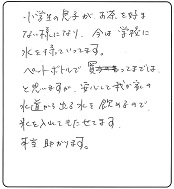 小学生の息子が、お茶を好ま
ない様になり、今は学校に
水を持っていってます。
ペットボトルで買ってまでは、
と思いますが、安心して我が家の
水道から出る水を飲めるので、
水を入れてもたせてます。
本当助かります。